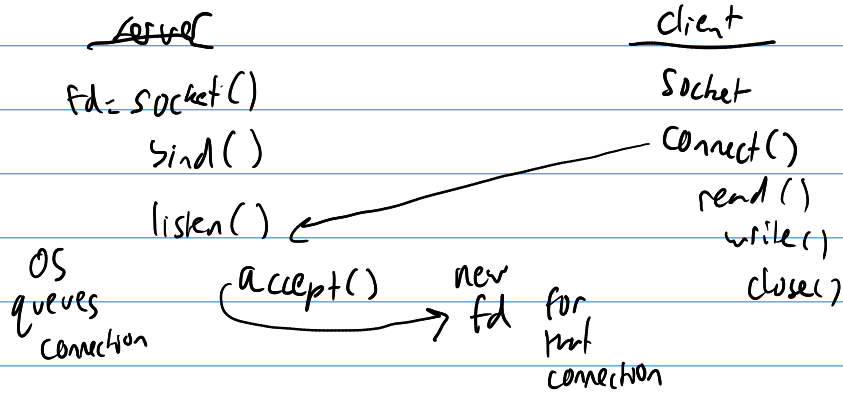 server
fd = socket()
bind()
listen()
OS
queues
connection
accept()
new
fd
for
that
connection
client
socket
connect()
read()
write()
close()